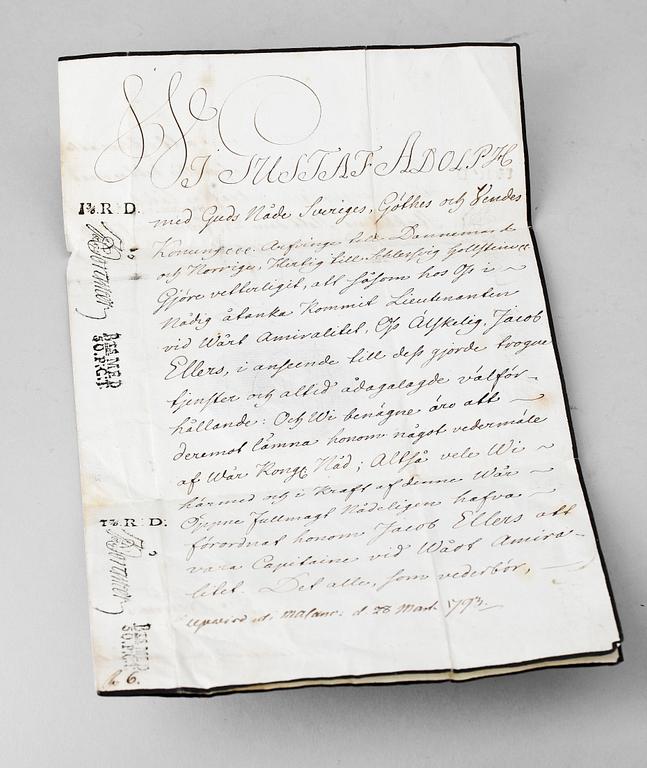 Wi GUSTAF ADOLPH
med Guds Nåde Sveriges, Göthes och Vendes
Konung &c&c. Arfvinge till Dannemark
och Norrige, Hertig till Schlesvig Hollstein &c
Gjöre vetterligit, att såsom hos Oss i
Nådig åtanka kommit Lieutenanten
vid Wårt Amiralitet, Oss Älskelig, Jacob
Ellers, i anseende till dess gjorde trogne
tjenster och altid ådagalagde välför-
hållande: Och Wi benägne äro att
deremot lämna honom något vedermäle
af Wår Kongl. Nåd; Altså vele Wi
härmed och i kraft af denne Wår
Öppne Fullmagt Nådeligen hafva
förordnat honom Jacob Ellers att
vara Capitaine vid Wårt Amira-
litet. Det alle, som vederbör,
d. 28 Mart. 1793.
R D.
R D.
6.